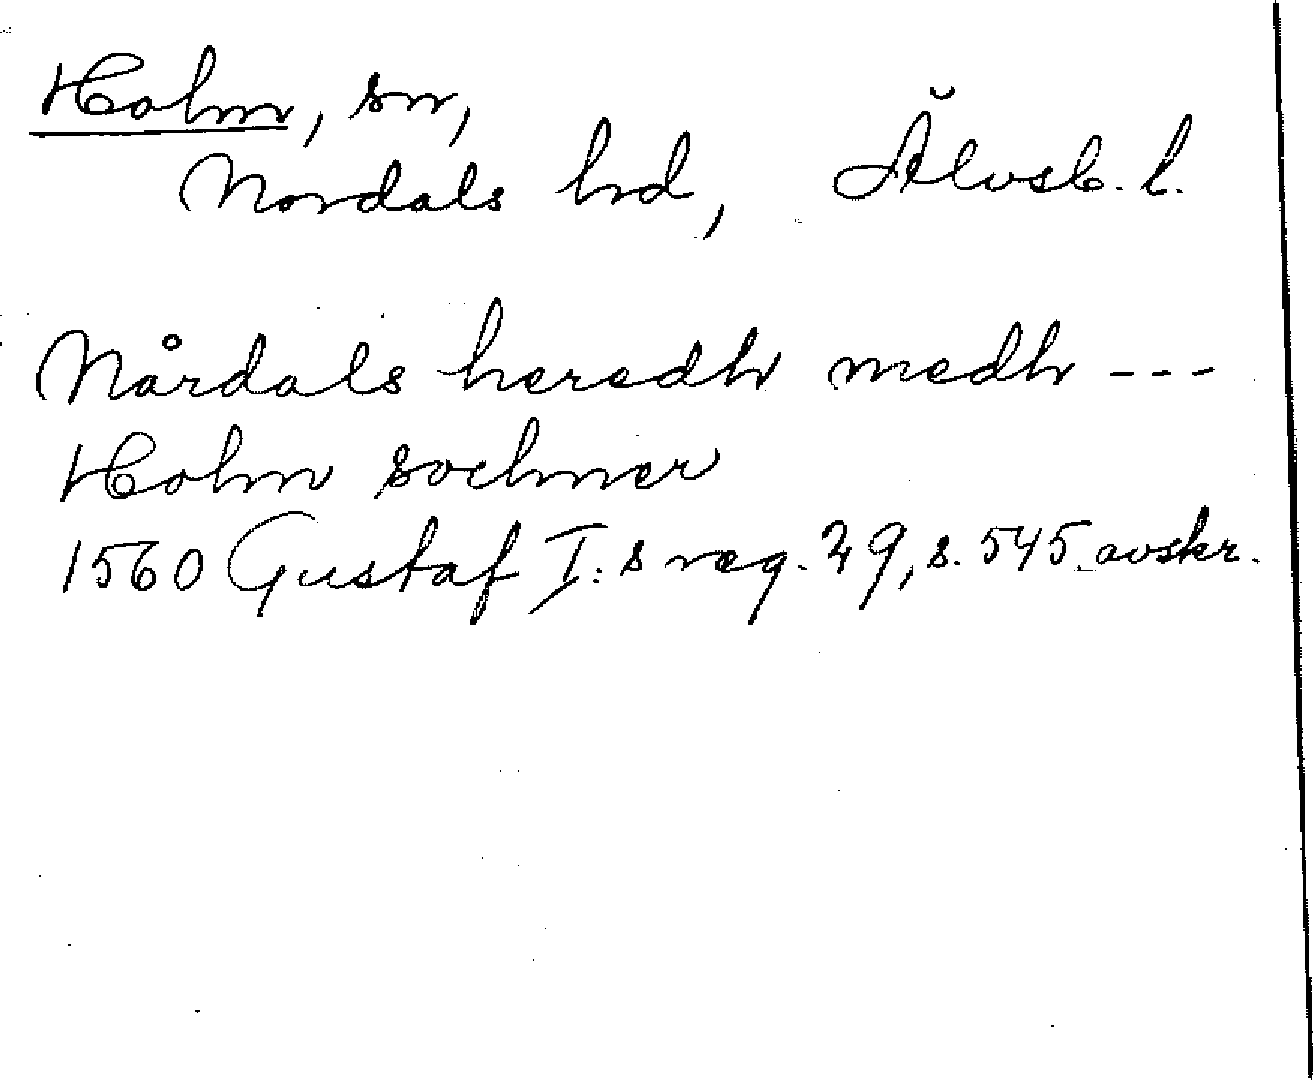 Holm, sn,
Nordals hd, Älvsb. l.
Nårdals heredh medh ---
Holm sochner
1560 Gustaf I:s reg. 29, s. 545 avskr.